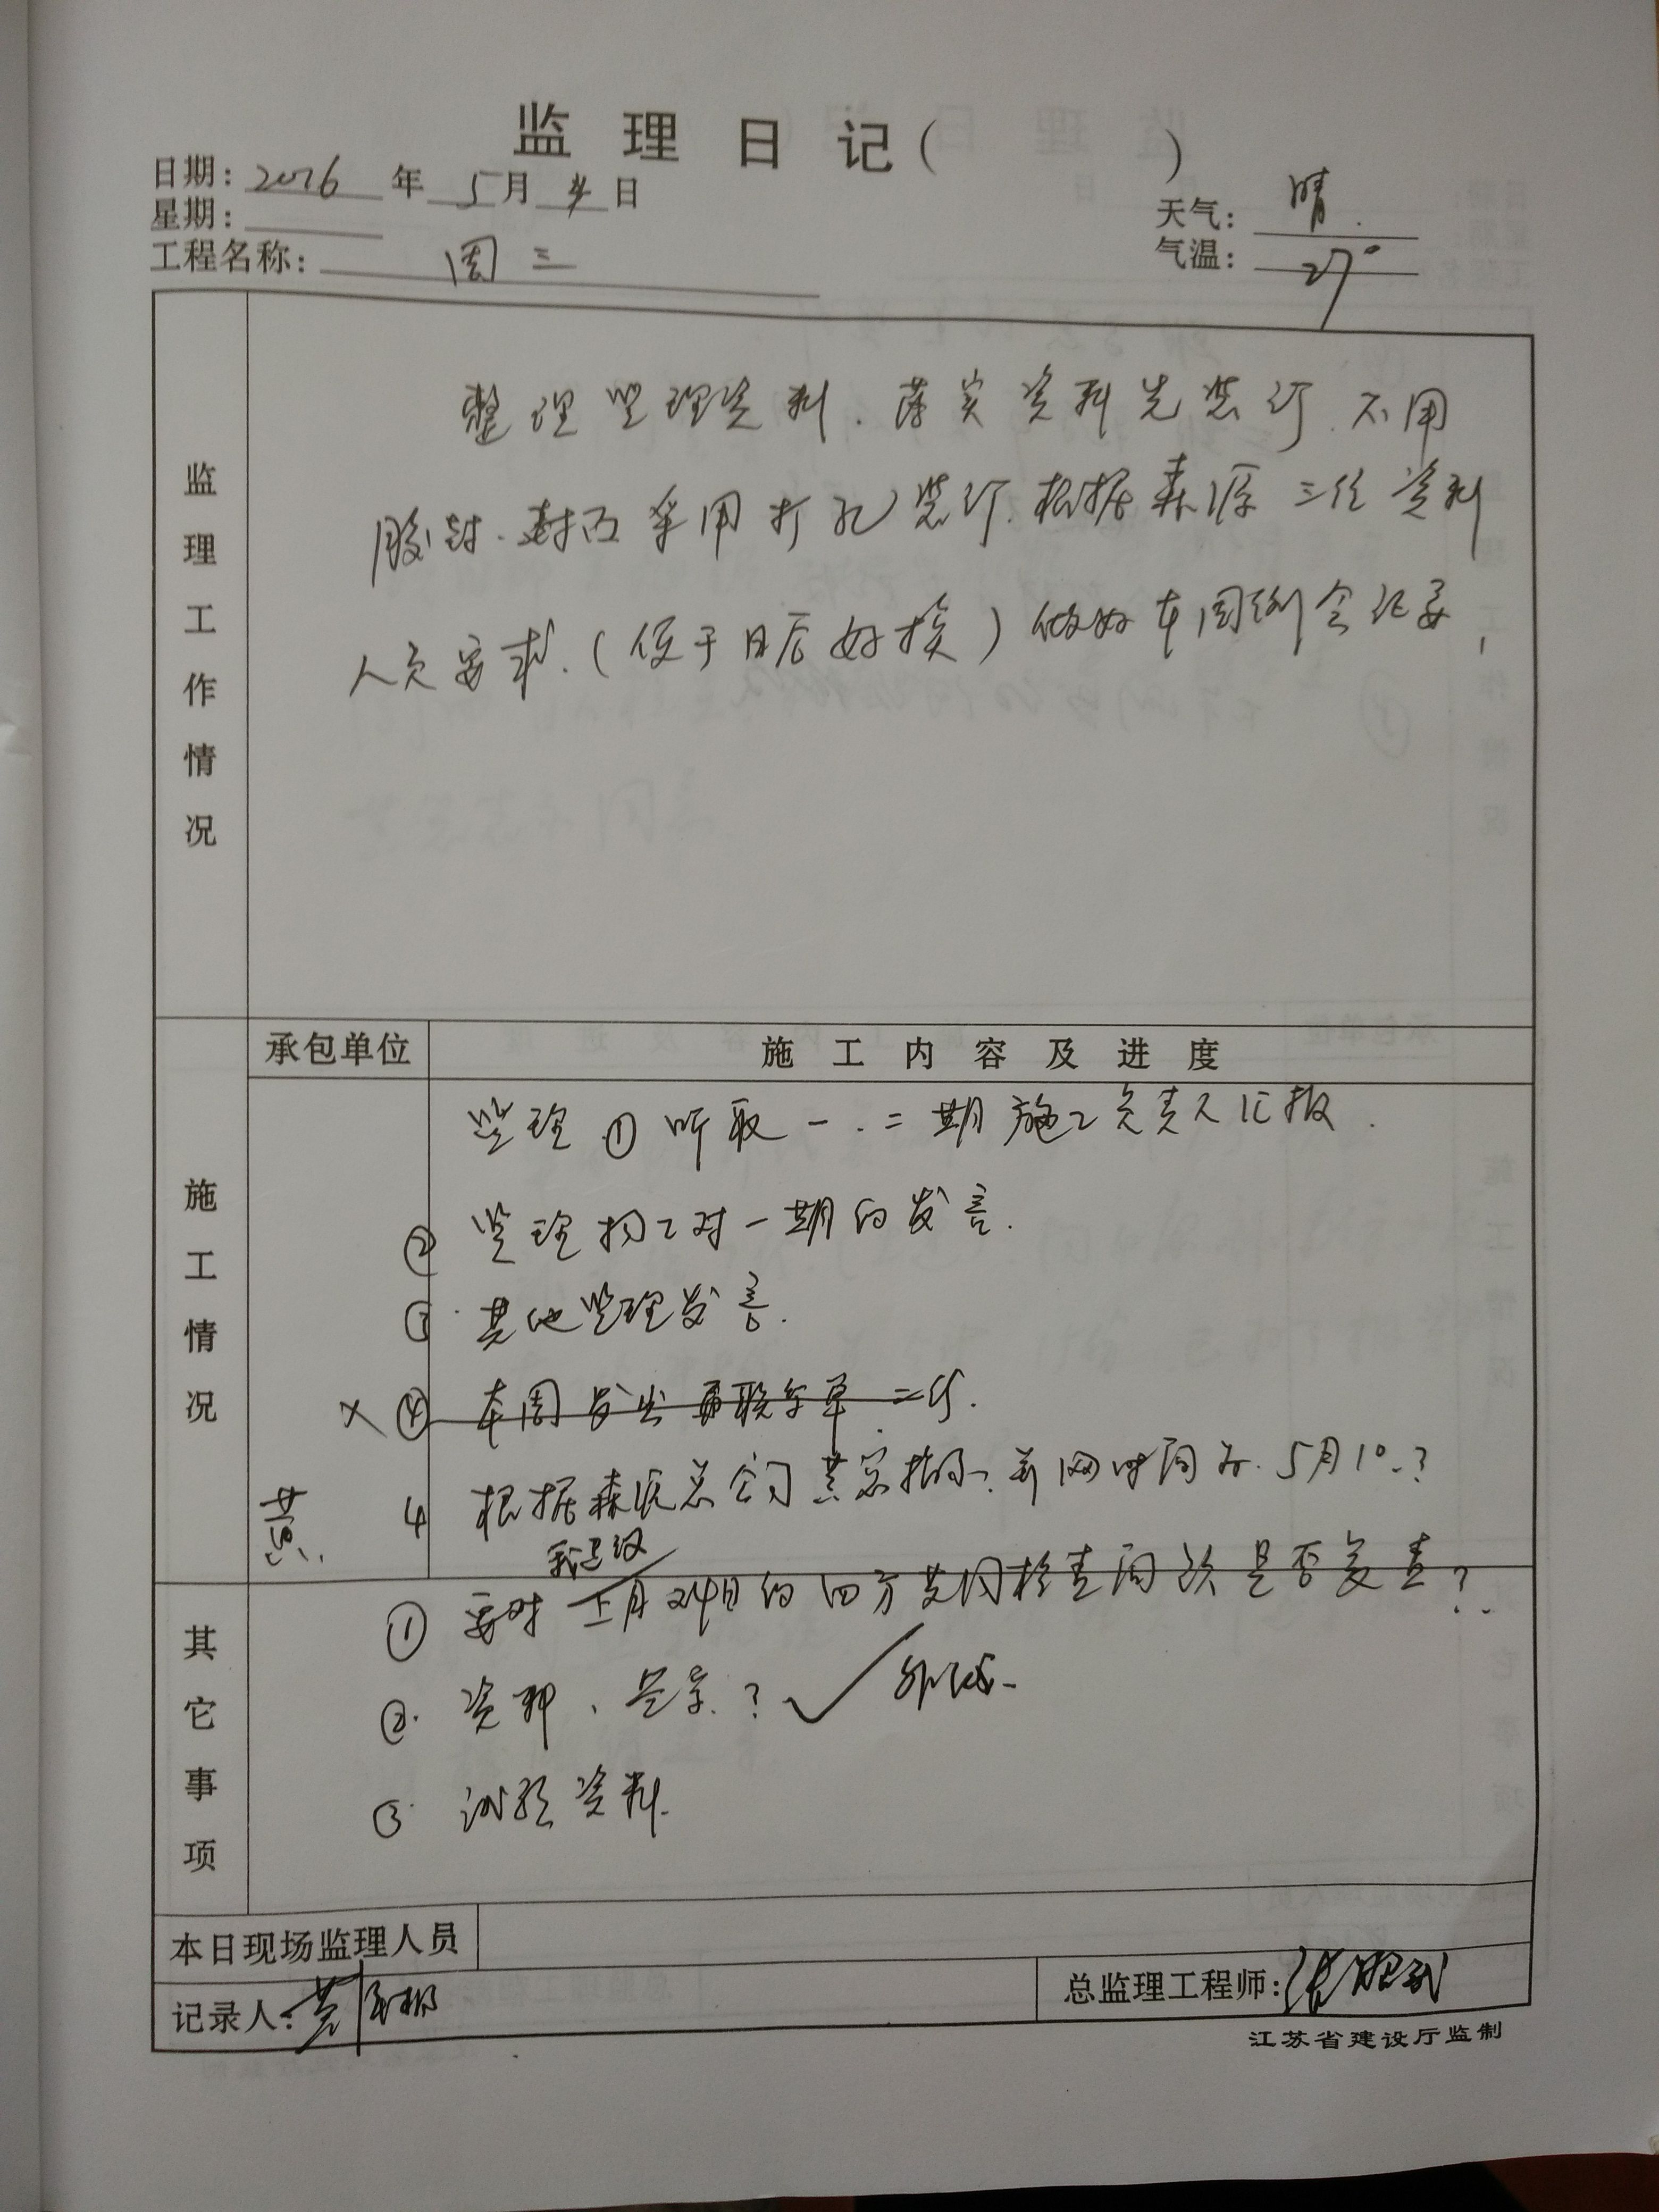 监理日记（ ）
日期：2016年5月4日
天气：晴.
星期：
气温：27°
工程名称：周三
监理工作情况
整理监理资料.落实资料先装订.不用
胶封.封面采用打孔装订.根据森源三位资料
人员要求.（便于日后好换）做好本周例会纪要,
承包单位 施工内容及进度
施工情况
监理①听取一.二期施工负责人汇报.
② 监理 对一期的发言.
③.其他监理发言.
×④ 本周发出 联系单二份.
黄 4 根据森源总公司黄总指示.并网时间为.5月10.?
我建议
其它事项
① 要对上月24日的四方 检查问题是否复查?
②.资料、 ?✓
③.试验资料.
本日现场监理人员
记录人：黄
总监理工程师：张
江苏省建设厅监制